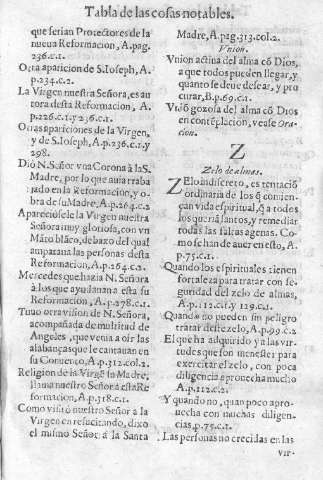 Tabla de las cosas notables.
que serian Protectores de la
nueua Reformacion, A.pag.
236.c.1.
Otra aparicion de S. Ioseph, A.
p.234.c.2.
La Virgen nuestra Señora, es au
tora desta Reformacion, A.
p.226.c.1.y 236.c.1.
Otras apariciones de la Virgen,
y de S. Ioseph, A.p.236.c.1.y
298.
Dió N. Señor vna Corona à la S.
Madre, por lo que auia traba
jado en la Reformacion, y o-
bra de su Madre, A.p.264.c.2
Apareciósele la Virgen nuestra
Señora muy gloriosa, con vn
Mãto blãco, debaxo del qual
amparaua las personas desta
Reformacion, A.p.264.c.2.
Mercedes que hazia N. Señora
à los que ayudauan a esta su
Reformacion, A.p.278.c.1.
Tuuo otra vision de N. Señora,
acompañada de multitud de
Angeles, que venia a oir las
alabanças que le cantauan en
su Conuento, A.p.312.col.2.
Religion de la Virgẽ su Madre,
llama nuestro Señor a esta Re
formacion, A.p.318.c.1.
Como visitó nuestro Señor à la
Virgen en resucitando, dixo
el mismo Señor à la Santa
Madre, A.pag.313.col.2.
Vnion.
Vnion actiua del alma cõ Dios,
a que todos pueden llegar, y
quanto se deue dessear, y pro
curar, B.p.69.c.1.
Vnió gozosa del alma cõ Dios
en contẽplacion, vease Ora-
cion.
Z
Zelo de almas.
ZElo indiscreto, es tentació
ordinaria de los q̃ comien-
çan vida espiritual, q̃ a todos
los querriã santos, y remediar
todas las faltas agenas. Co-
mo se han de auer en esto, A.
p.75.c.1.
Quando los espirituales tienen
fortaleza para tratar con se-
guridad del zelo de almas,
A.p.112.c.1.y 129.c.1.
Quando no pueden sin peligro
tratar deste zelo, A.p.99.c.2
El que ha adquirido ya las vir-
tudes que son menester para
exercitar el zelo, con poca
diligencia aprouecha mucho
A.p.112.c.2.
Y quando no, quan poco apro-
uecha con muchas diligen-
cias, p.75.c.1.
Las personas no crecidas en las
vir-